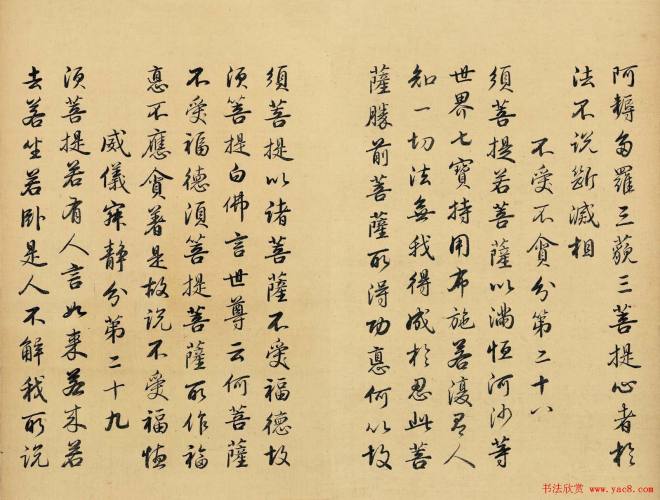 阿耨多羅三藐三菩提心者於
法不說斷滅相
不受不貪分第二十八
須菩提若菩薩以滿恒河沙等
世界七寶持用布施若復有人
知一切法無我得成於忍此菩
薩勝前菩薩所得功德何以故
須菩提以諸菩薩不受福德故
須菩提白佛言世尊云何菩薩
不受福德須菩提菩薩所作福
德不應貪著是故說不受福德
威儀寂靜分第二十九
須菩提若有人言如來若來若
去若坐若臥是人不解我所說
书法欣赏 www.yac8.com